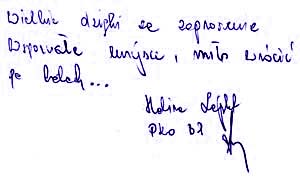 Wielkie dzięki za zaproszenie
Wspaniałe miejsce, miło wrócić
po latach...
Halina
PKO BP